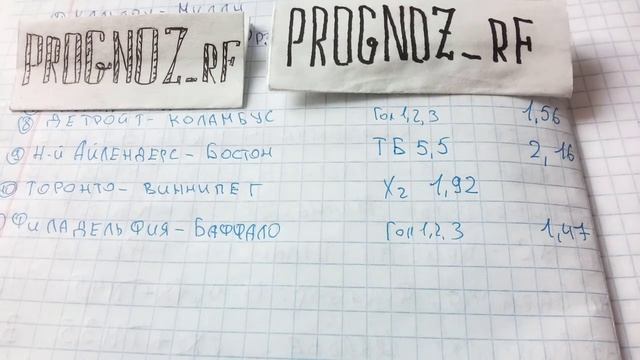 PROGNOZ_RF
PROGNOZ_RF
⑧ ДЕТРОЙТ - КОЛАМБУС Гол 1,2,3 1,56
⑨ Н-Й АЙЛЕНДЕРС - БОСТОН ТБ 5,5 2,16
⑩ ТОРОНТО - ВИННИПЕГ X2 1,92
ФИЛАДЕЛЬФИЯ - БАФФАЛО Гол 1,2,3 1,47